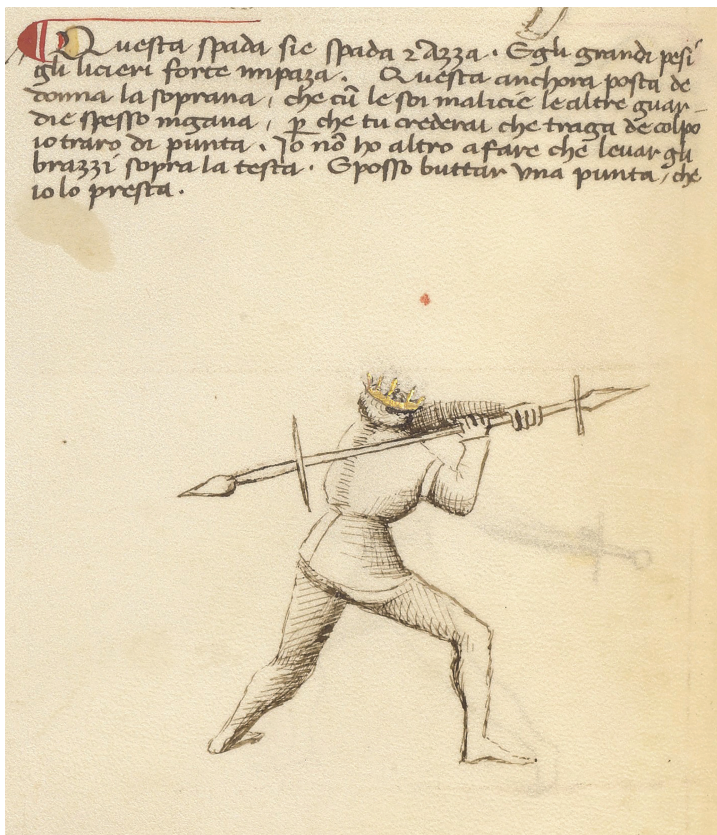 Questa spada sie spada ⁊ Azza · E gli grandi pesi
gli licieri forte impaza · Questa anchora posta de
donna la soprana / che cū le soi malicie le altre guar-
die spesso ingana / ꝑ che tu crederai che traga de colpo
io traro di punta · Io nō ho altro a fare che levar gli
brazzi sopra la testa · E posso buttar una punta / che
io lo presta ·